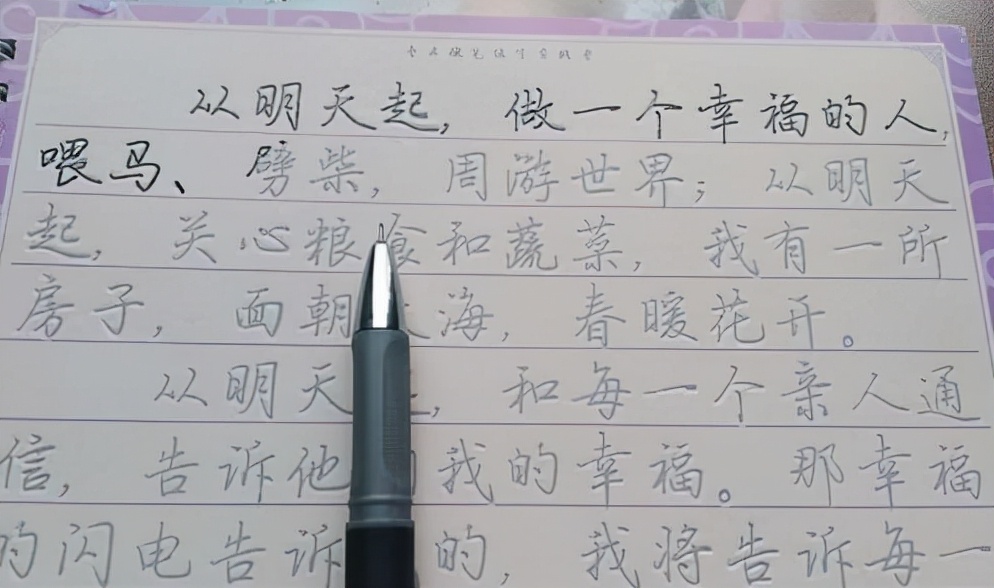 从明天起，做一个幸福的人，
喂马、劈柴，周游世界；从明天
起，关心粮食和蔬菜，我有一所
房子，面朝海，春暖花开。
从明天，和每一个亲人通
信，告诉他我的幸福。那幸福
的闪电告诉的，我将告诉每一